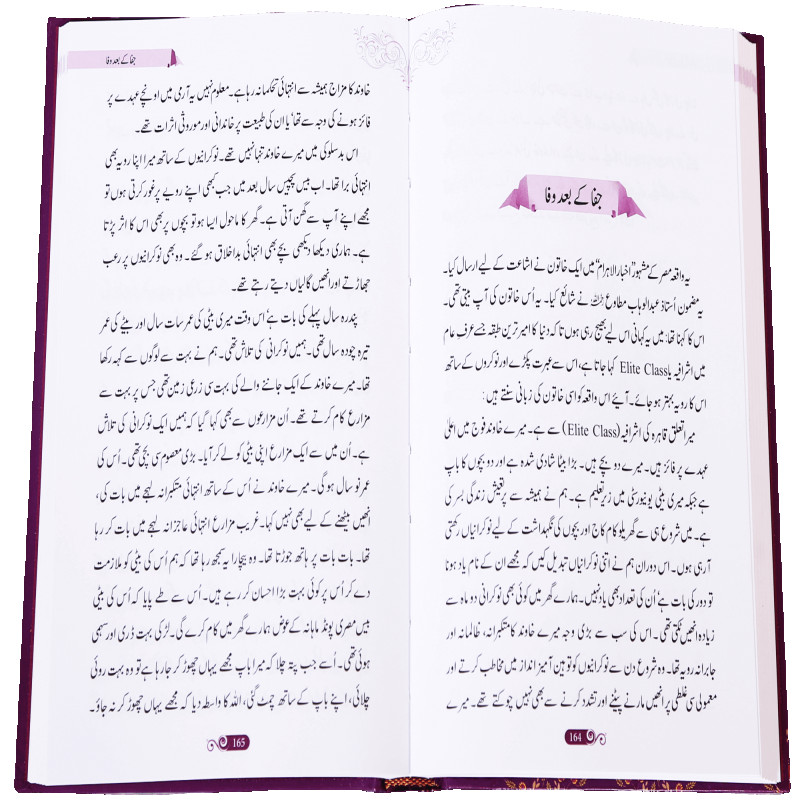 جفا کے بعد وفا
یہ واقعہ مصر کے مشہور ”اخبار الاہرام“ میں ایک خاتون نے اشاعت کے لیے ارسال کیا۔
یہ مضمون اُستاذ عبدالوہاب مطاوع نے شائع کیا۔ یہ اُس خاتون کی آپ بیتی تھی۔
اس کا کہنا تھا: میں یہ کہانی اس لیے بھیج رہی ہوں تاکہ دنیا کا امیر ترین طبقہ جسے عرفِ عام
میں اشرافیہ یا Elite Class کہا جاتا ہے، اس سے عبرت پکڑے اور نوکروں کے ساتھ
اس کا رویہ بہتر ہو جائے۔ آیئے اس واقعہ کو اسی خاتون کی زبانی سنتے ہیں:
میرا تعلق قاہرہ کی اشرافیہ (Elite Class) سے ہے۔ میرے خاوند فوج میں اعلیٰ
عہدے پر فائز ہیں۔ میرے دو بچے ہیں۔ بڑا بیٹا شادی شدہ ہے اور دو بچوں کا باپ
ہے جبکہ میری بیٹی یونیورسٹی میں زیرِ تعلیم ہے۔ ہم نے ہمیشہ سے پرتعیش زندگی بسر کی
ہے۔ میں شروع ہی سے گھریلو کام کاج اور بچوں کی نگہداشت کے لیے نوکرانیاں رکھتی
آ رہی ہوں۔ اس دوران ہم نے اتنی نوکرانیاں تبدیل کیں کہ مجھے ان کے نام یاد ہونا
تو دور کی بات ہے‘ اُن کی تعداد بھی یاد نہیں۔ ہمارے گھر میں کوئی بھی نوکرانی دو ماہ سے
زیادہ نہیں ٹکتی تھی۔ اس کی سب سے بڑی وجہ میرے خاوند کا متکبرانہ، ظالمانہ اور
جابرانہ رویہ تھا۔ وہ شروع دن سے نوکرانیوں کو توہین آمیز انداز میں مخاطب کرتے اور
معمولی سی غلطی پر انھیں مارنے پیٹنے اور تشدد کرنے سے بھی نہیں چوکتے تھے۔ میرے
164
جفا کے بعد وفا
خاوند کا مزاج ہمیشہ سے انتہائی تحکمانہ رہا ہے۔ معلوم نہیں یہ آرمی میں اونچے عہدے پر
فائز ہونے کی وجہ سے تھا‘ یا ان کی طبیعت پر خاندانی اور موروثی اثرات تھے۔
اس بدسلوکی میں میرے خاوند تنہا نہیں تھے۔ نوکرانیوں کے ساتھ میرا اپنا رویہ بھی
انتہائی برا تھا۔ اب بیس پچیس سال بعد میں جب کبھی اپنے رویے پر غور کرتی ہوں تو
مجھے اپنے آپ سے گھن آتی ہے۔ گھر کا ماحول ایسا ہو تو بچوں پر بھی اس کا اثر پڑتا
ہے۔ ہماری دیکھا دیکھی بچے بھی انتہائی بداخلاق ہو گئے۔ وہ بھی نوکرانیوں پر رعب
جھاڑتے اور انھیں گالیاں دیتے رہتے تھے۔
پندرہ سال پہلے کی بات ہے‘ اس وقت میری بیٹی کی عمر سات سال اور بیٹے کی عمر
تیرہ چودہ سال تھی۔ ہمیں نوکرانی کی تلاش تھی۔ ہم نے بہت سے لوگوں سے کہہ رکھا
تھا۔ میرے خاوند کے ایک جاننے والے کی بہت سی زرعی زمین تھی جس پر بہت سے
مزارع کام کرتے تھے۔ اُن مزارعوں سے بھی کہا گیا کہ ہمیں ایک نوکرانی کی تلاش
ہے۔ اُن میں سے ایک مزارع اپنی بیٹی کو لے کر آیا۔ بڑی معصوم سی بچی تھی۔ اُس کی
عمر نو سال ہو گی۔ میرے خاوند نے اُس کے ساتھ انتہائی متکبرانہ لہجے میں بات کی،
انھیں بیٹھنے کے لیے بھی نہیں کہا۔ غریب مزارع انتہائی عاجزانہ لہجے میں بات کر رہا
تھا۔ بات بات پر ہاتھ جوڑتا تھا۔ وہ بیچارا یہ سمجھ رہا تھا کہ ہم اُس کی بیٹی کو ملازمت
دے کر اُس پر کوئی بہت بڑا احسان کر رہے ہیں۔ اُس سے طے پایا کہ اُس کی بیٹی
بیس مصری پونڈ ماہانہ کے عوض ہمارے گھر میں کام کرے گی۔ لڑکی بہت ڈری اور سہمی
ہوئی تھی۔ اُسے جب پتہ چلا کہ میرا باپ مجھے یہاں چھوڑ کر جا رہا ہے تو وہ بہت روئی
چلائی، اپنے باپ کے ساتھ چمٹ گئی، اللہ کا واسطہ دیا کہ مجھے یہاں چھوڑ کر نہ جاؤ۔
165